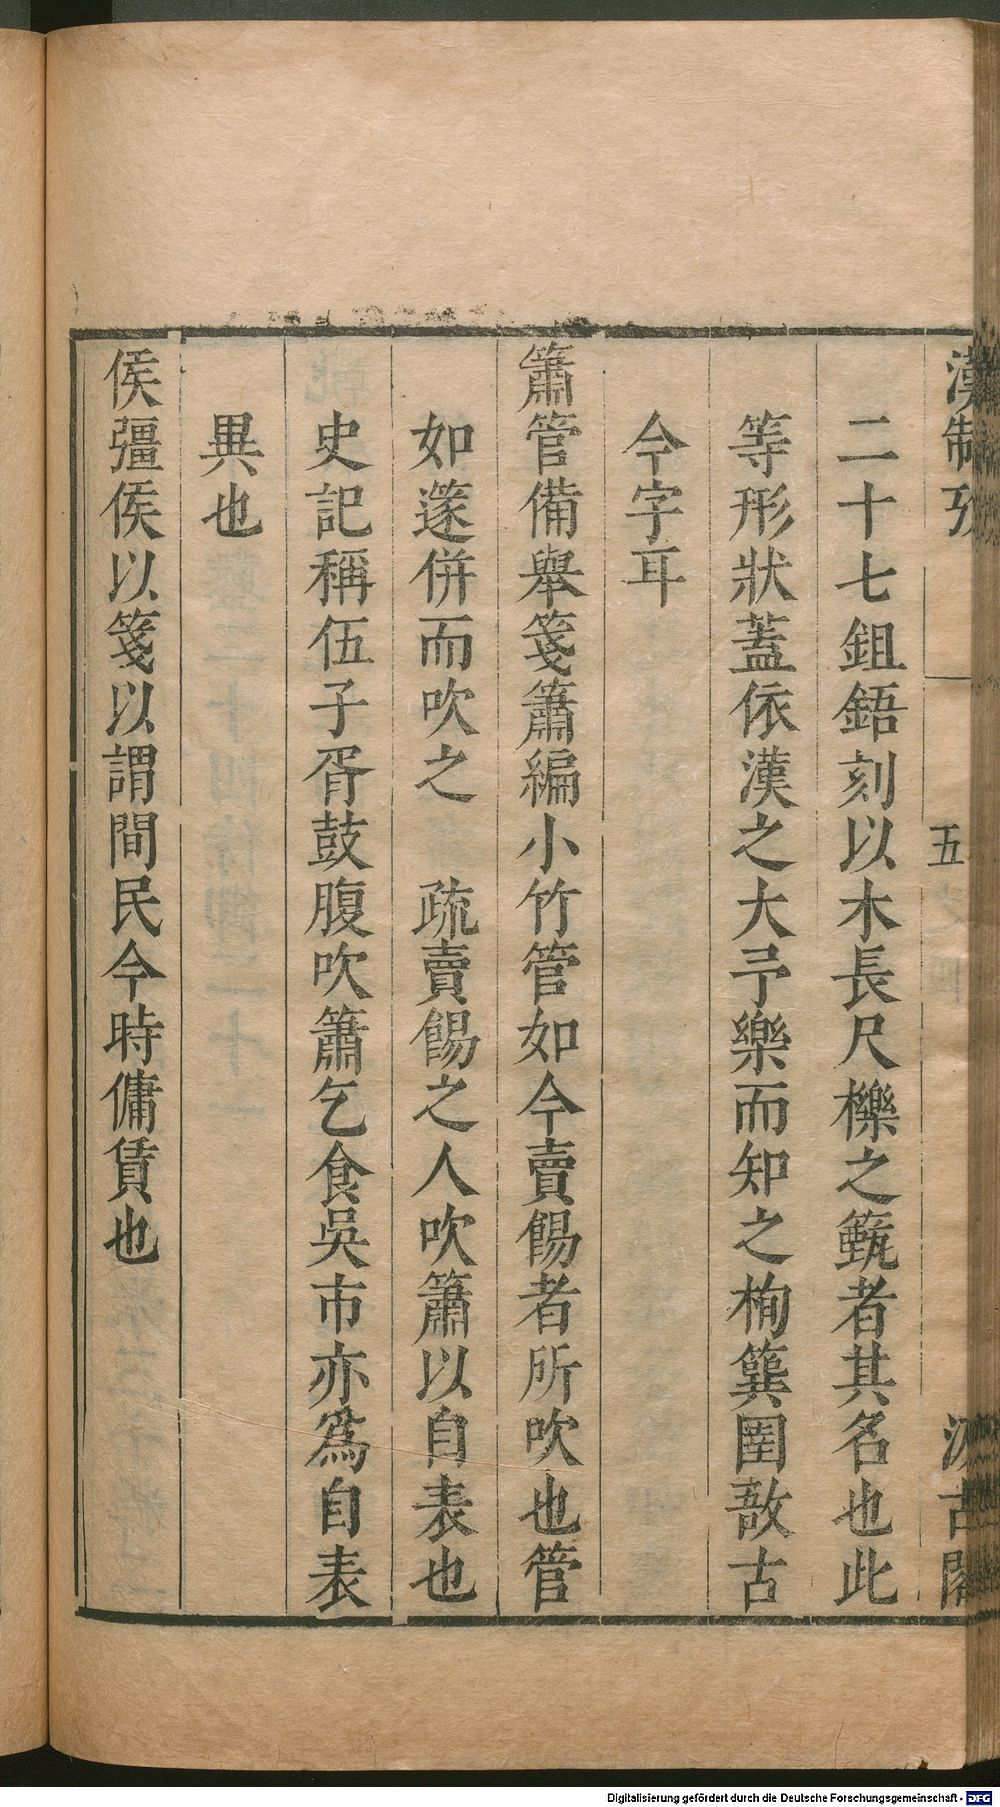 漢制攷
五
汲古閣
二十七鉏鋙刻以木長尺櫟之籈者其名也此
等形狀蓋依漢之大予樂而知之栒簨圉敔古
今字耳
簫管備舉箋簫編小竹管如今賣餳者所吹也管
如篴併而吹之　疏賣餳之人吹簫以自表也
史記稱伍子胥鼓腹吹簫乞食吳市亦爲自表
異也
侯彊侯以箋以謂間民今時傭賃也
Digitalisierung gefördert durch die Deutsche Forschungsgemeinschaft - DFG